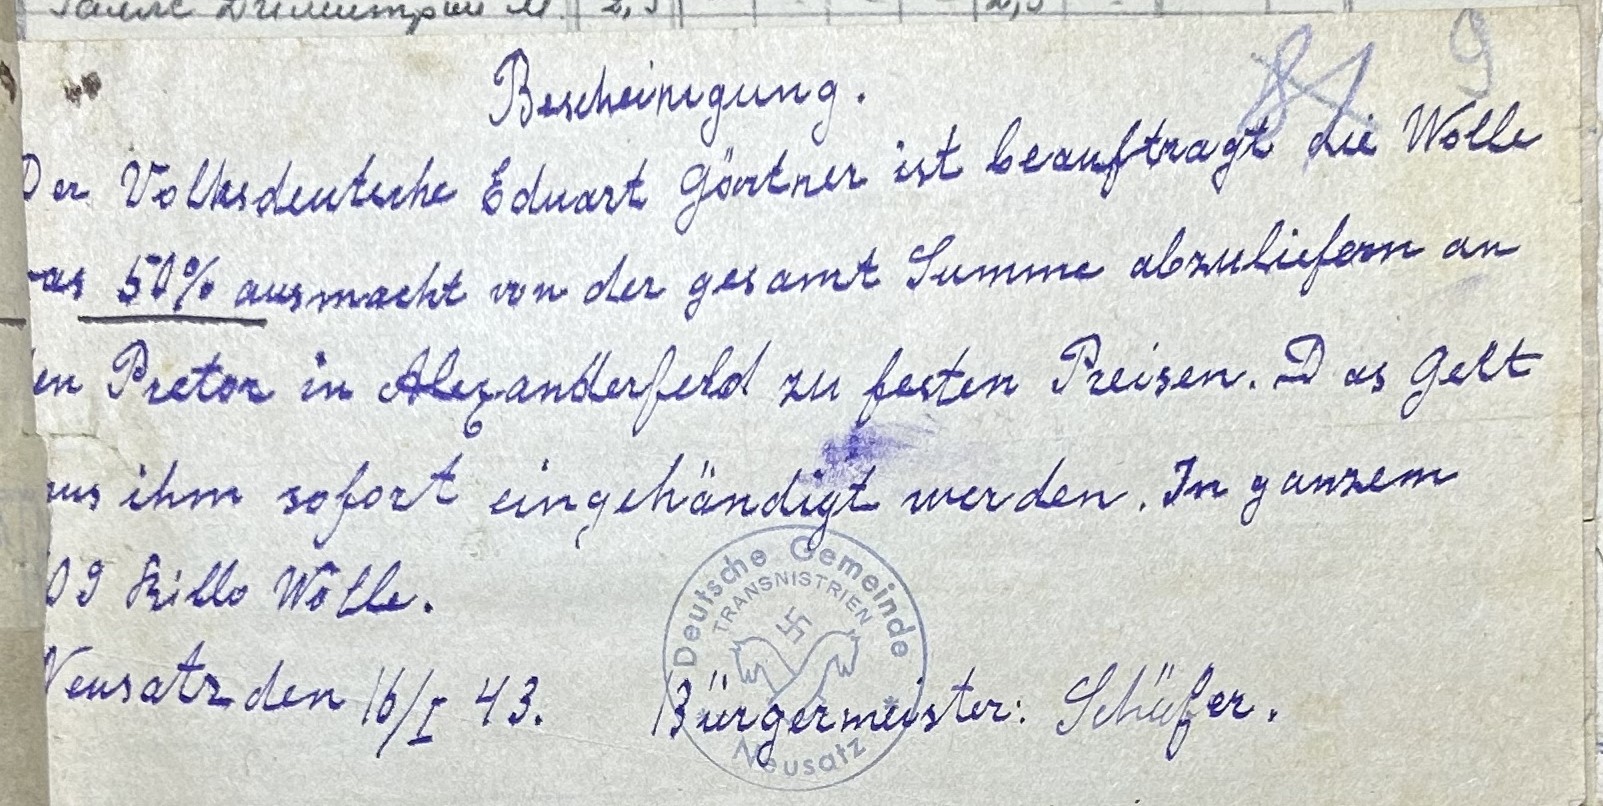 2,5 - - - 2,5 - - -
9
84
Bescheinigung.
Der Volksdeutsche Eduart Gärtner ist beauftragt die Wolle
as 50% ausmacht von der gesamt Summe abzuliefern an
en Pretor in Alexanderfeld zu festen Preisen. Das Gelt
us ihm sofort eingehändigt werden. In ganzem
09 Killo Wolle.
Neusatz den 16/I 43. Bürgermeister: Schäfer.
Deutsche Gemeinde
TRANSNISTRIEN
Neusatz